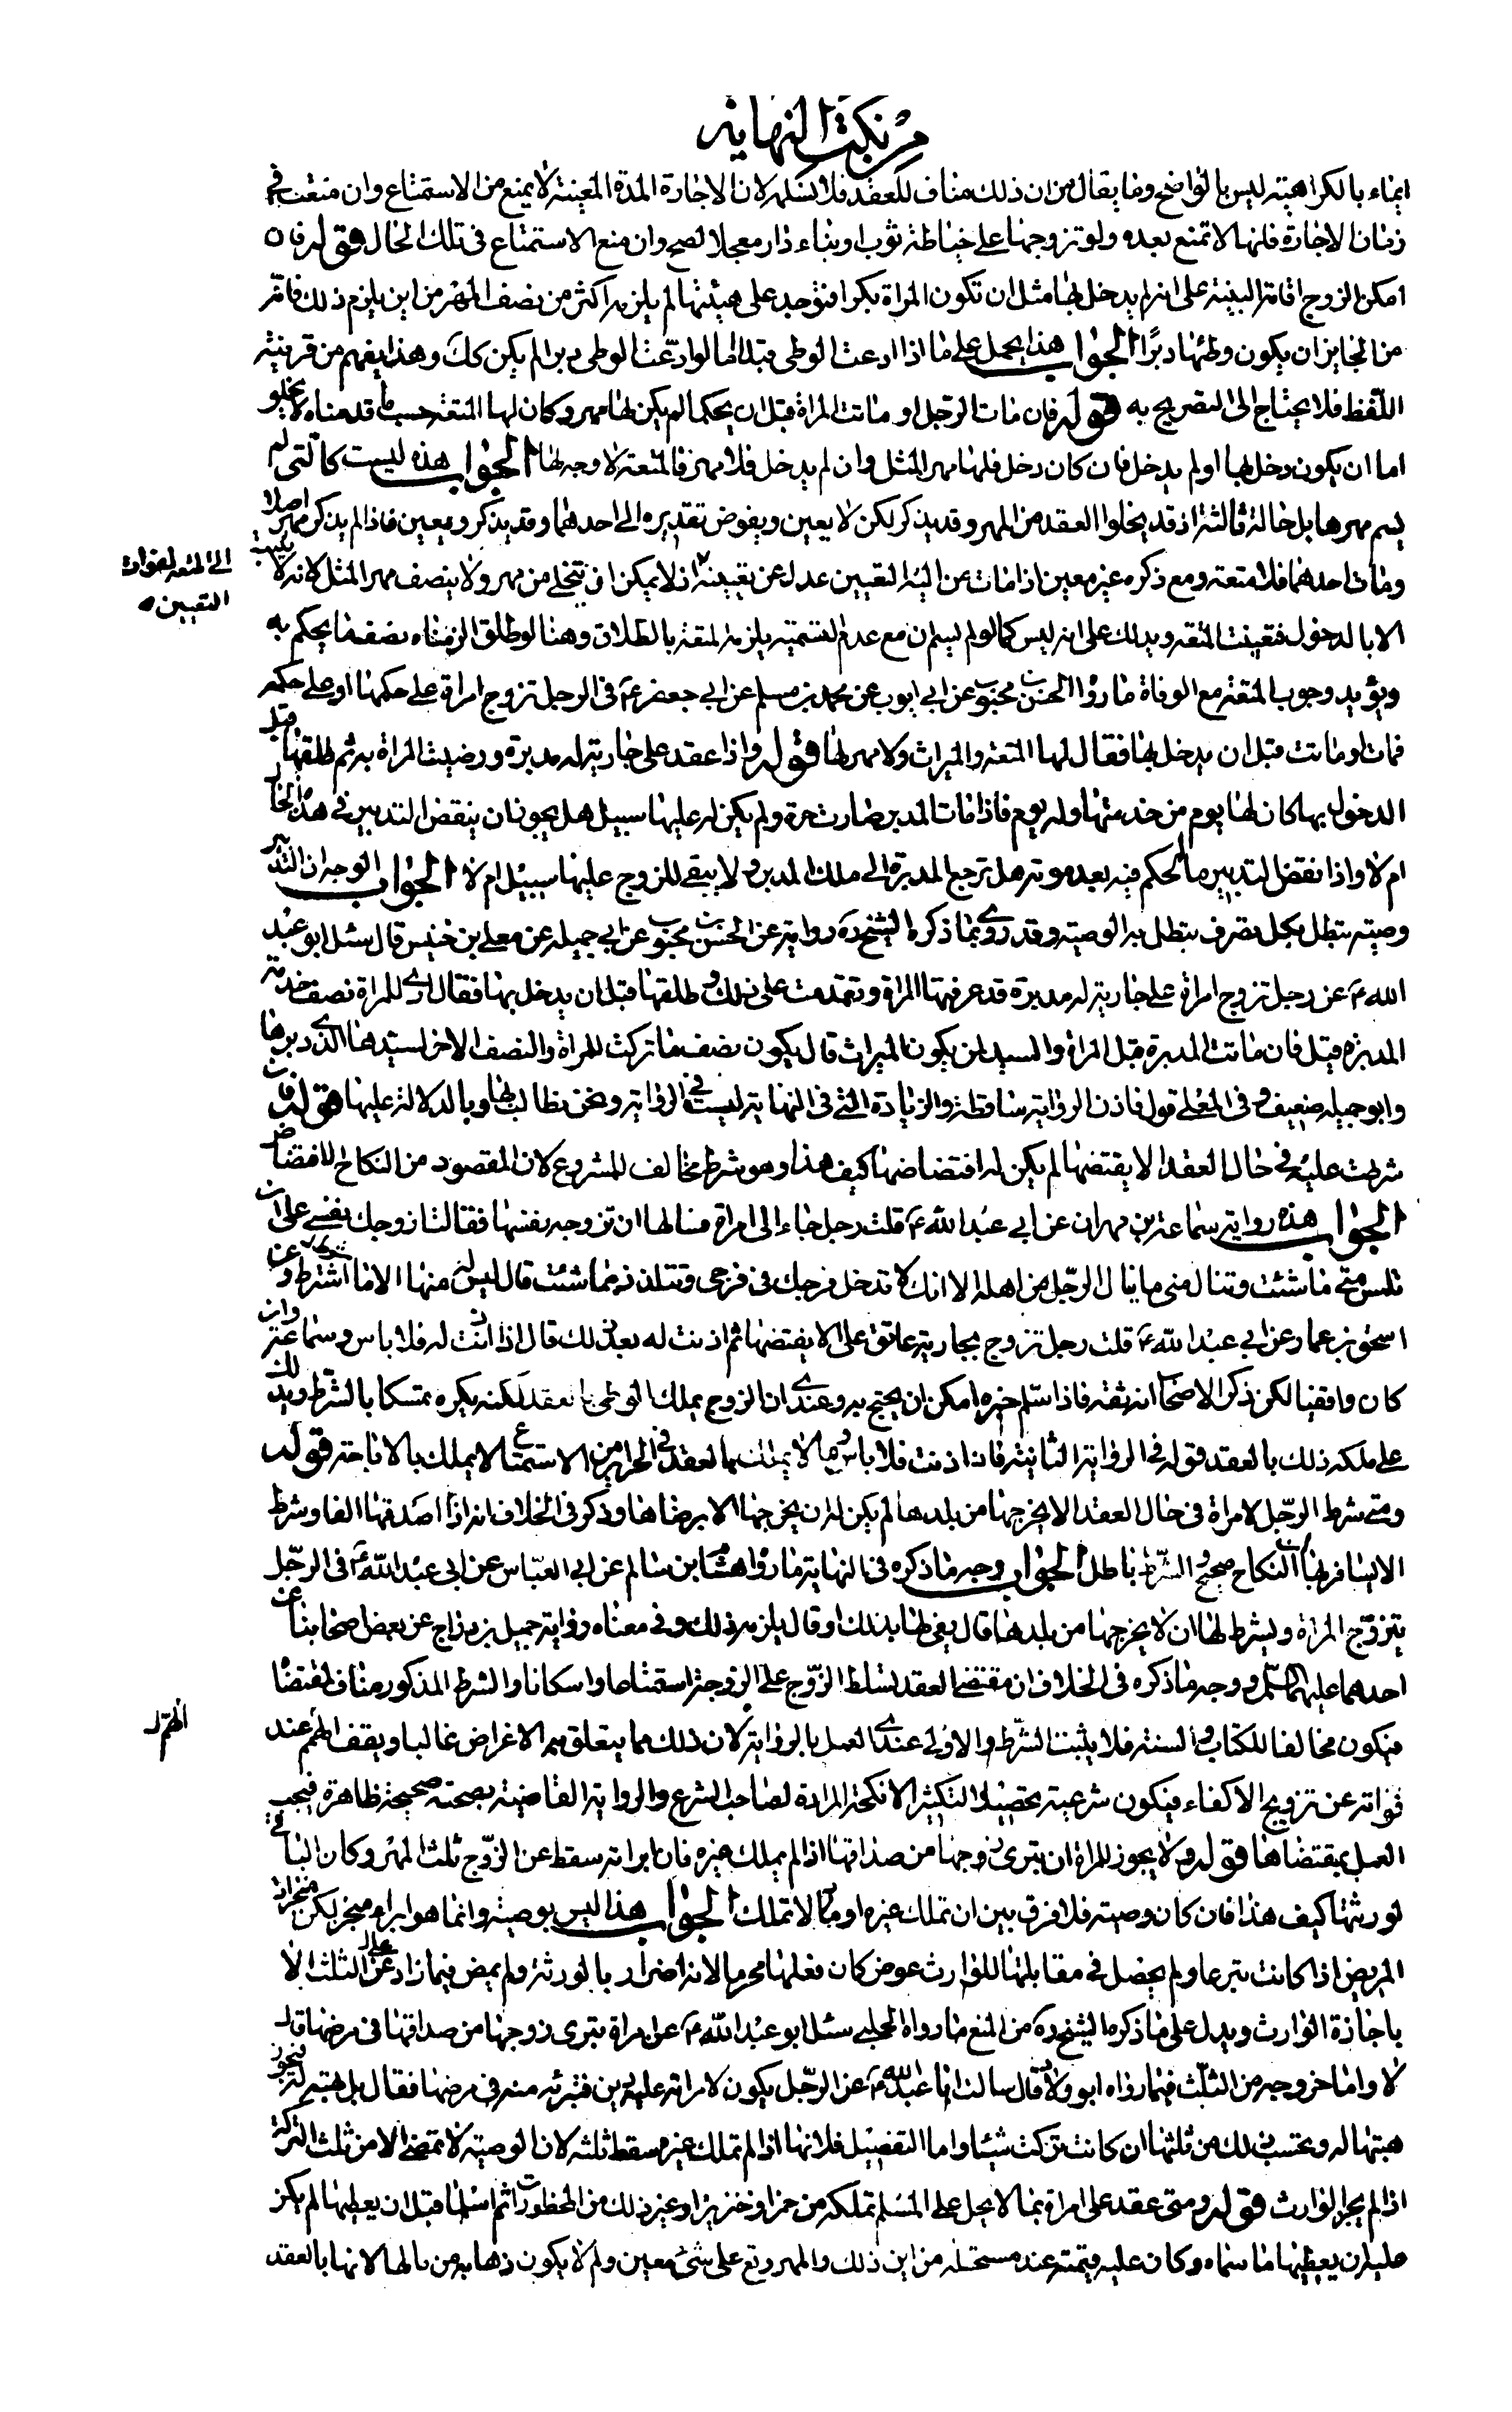 من نكت النهاية
ايماء بالكراهية ليس بالواضح وما يقال من ان ذلك مناف للعقد فلا نسلم لان الاجارة المدة المعينة لا يمنع من الاستمتاع وان منعت في
زمان الاجارة فانها لا تمنع بعده ولو تزوجها على خياطة ثوب او بناء دار معجلا لصح وان منع الاستمتاع في تلك الحال قوله فان
امكن الزوج اقامة البينة على انه لم يدخل بها مثل ان تكون المراة بكرا فتوجد على هيئتها لم يلزمه اكثر من نصف المهر من اين يلزم ذلك فانه
من الجايز ان يكون وطئها دبرًا الجواب هذا يحمل على ما اذا ادعت الوطي قبلا اما لو ادّعت الوطي دبرا لم يكن كك وهذا يفهم من قرينة
اللّفظ فلا يحتاج الى التصريح به قوله فان مات الرّجل او ماتت المراة قبل ان يحكما لم يكن لها مهر وكان لها المتعة حسب ما قدمناه لا يخلو
اما ان يكون دخل بها او لم يدخل فان كان دخل فلها مهر المثل وان لم يدخل فلا مهر فالمتعة لا وجه لها الجواب هذه ليست كالتي لم
يسم مهرها بل حالة ثالثة اذ قد يخلوا العقد من المهر وقد يذكر لكن لا يعين ويفوض تقديره الى احدهما وقد يذكر ويعين فاذا لم يذكر مهر اصلا
ومات احدهما فلا متعة ومع ذكره غير معين اذا مات من اليه التعيين عدل عن تعيينه اذ لا يمكن ان تتخلى من مهر ولا ينصف مهر المثل لانه لا يثبت
الى المتعة لفوات
التعيين
الا بالدخول فتعينت المتعة ويدلك على انه ليس كما لو لم يسم ان مع عدم التسمية يلزم المتعة بالطلاق وهنا لو طلق الزمناه نصف ما يحكم به
ويؤيد وجوب المتعة مع الوفاة ما رواه الحسن بن محبوب عن ابي ايوب عن محمد بن مسلم عن ابي جعفر ع في الرجل تزوج امراة على حكمها او على حكمه
فمات او ماتت قبل ان يدخل بها فقال لها المتعة والميراث ولا مهر لها قوله واذا عقد على جارية له مدبرة ورضيت المراة به ثم طلقها قبل
الدخول بها كان لها يوم من خدمتها وله يوم فاذا مات المدبر صارت حرة ولم يكن له عليها سبيل هل يجوز ان ينقض التدبير في هذه الحال
ام لا واذا نقض التدبير ما الحكم فيه بعد موته هل ترجع المدبرة الى ملك المدبر ولا يبقى للزوج عليها سبيل ام لا الجواب الوجه ان التدبير
وصية تبطل بكل تصرف تبطل به الوصية وقد روى ما ذكره الشيخ ره رواية عن الحسن بن محبوب عن ابي جميلة عن معلى بن خنيس قال سئل ابو عبد
الله ع عن رجل تزوج امراة على جارية له مدبرة قد عرفتها المراة وتقدمت على ذلك وطلقها قبل ان يدخل بها فقال ارى للمراة نصف خدمة
المدبرة قيل فان ماتت المدبرة قبل المراة والسيد لمن يكون الميراث قال يكون نصف ما تركت للمراة والنصف الاخر لسيدها الذي دبرها
وابو جميلة ضعيف وفي المعلى قول فاذن الرواية ساقطة والزيادة التي في النهاية ليست في الرواية ونحن نطالب بها وبالدلالة عليها قوله فان
شرطت عليه في حال العقد الا يفتضها لم يكن له افتضاضها كيف هذا وهو شرط مخالف للمشروع لان المقصود من النكاح الافتضاض
الجواب هذه رواية سماعة بن مهران عن ابي عبد الله ع قلت رجل جاء الى امراة فسالها ان تزوجه نفسها فقالت ازوجك نفسي على ان
تلمس مني ما شئت وتنال مني ما ينال الرّجل من اهله الا انك لا تدخل فرجك في فرجي وتتلذذ بما شئت قال ليس له منها الا ما اشترط وعن
اسحق بن عمار عن ابي عبد الله ع قلت رجل تزوج بجارية عاتق على الا يفتضها ثم اذنت له بعد ذلك قال اذا اذنت له فلا باس وسماعة وان
كان واقفيا لكن ذكر الاصحاب انه ثقة فاذا سلم خبره امكن ان يحتج به وعندي ان الزوج يملك الوطي بالعقد لكنه يكره تمسكا بالشرط ويدلك
على ملكه ذلك بالعقد قوله في الرواية الثانية فان اذنت فلا باس وما لا يملك بالعقد في الحراير من الاستمتاع لا يملك بالاباحة قوله
ومتى شرط الرّجل لامراة في حال العقد الا يخرجها من بلدها لم يكن له ان يخرجها الا برضاها وذكر في الخلاف انه اذا اصدقها الفا وشرط
الا يسافر بها ان النكاح صحيح والشرط باطل الجواب وجه ما ذكره في النهاية ما رواه هشام بن سالم عن ابي العبّاس عن ابي عبد الله ع في الرجّل
يتزوّج المراة ويشرط لها ان لا يخرجها من بلدها قال يفي لها بذلك او قال يلزمه ذلك وفي معناه رواية جميل بن دراج عن بعض اصحابنا عن
احدهما عليهما السّلم ووجه ما ذكره في الخلاف ان مقتضى العقد تسلط الزّوج على الزوجة استمتاعا واسكانا والشرط المذكور مناف لمقتضاه
فيكون مخالفا للكتاب والسنة فلا يثبت الشّرط والاولى عندي العمل بالرواية لان ذلك مما يتعلق به الاغراض غالبا ويقف الهمم عند
فواته عن تزويج الاكفاء فيكون شرعيته تحصيلا لتكثير الانكحة المرادة لصاحب الشرع والرواية القاضية بصحته صحيحة ظاهرة فيجب
العمل بمقتضاها قوله ولا يجوز للمراة ان يتبرى زوجها من صداقها اذا لم يملك غيره فان ابراته سقط عن الزوّج ثلث المهر وكان الباقي
لورثتها كيف هذا فان كان وصية فلا فرق بين ان تملك غيره او لا تملك الجواب هذا ليس بوصية وانما هو ابراء منجز لكن منجزات
المريض اذا كانت تبرعا ولم يحصل في مقابلتها للوارث عوض كان فعلها محرما لانه اضرار بالورثة ولم يمض فيما زاد على الثلث الا
باجازة الوارث ويدل على ما ذكره الشيخ ره من المنع ما رواه الحلبي سئل ابو عبد الله ع عن امراة تبرى زوجها من صداقها في مرضها قال
لا واما خروجه من الثلث فيما رواه ابو ولاد قال سالت ابا عبد الله ع عن الرّجل يكون لامراته عليه دين فتبرئه منه في مرضها فقال بل تهبه له فيجوز
هبتها له ويحتسب ذلك من ثلثها ان كانت تركت شيئا واما التفصيل فلانها اذا لم تملك غيره سقط ثلثه لان الوصية لا تمضى الا من ثلث التركة
اذا لم يجز الوارث قوله ومتى عقد على امراة بما لا يحل على المسلم تملكه من خمر او خنزير او غير ذلك من المحظورات ثم اسلما قبل ان يعطيها لم يكن
عليه ان يعطيها ما سماه وكان عليه قيمته عند مستحليه من اين ذلك والمهر وقع على شئ معين ولم لا يكون ذهابه من مالها لانها بالعقد